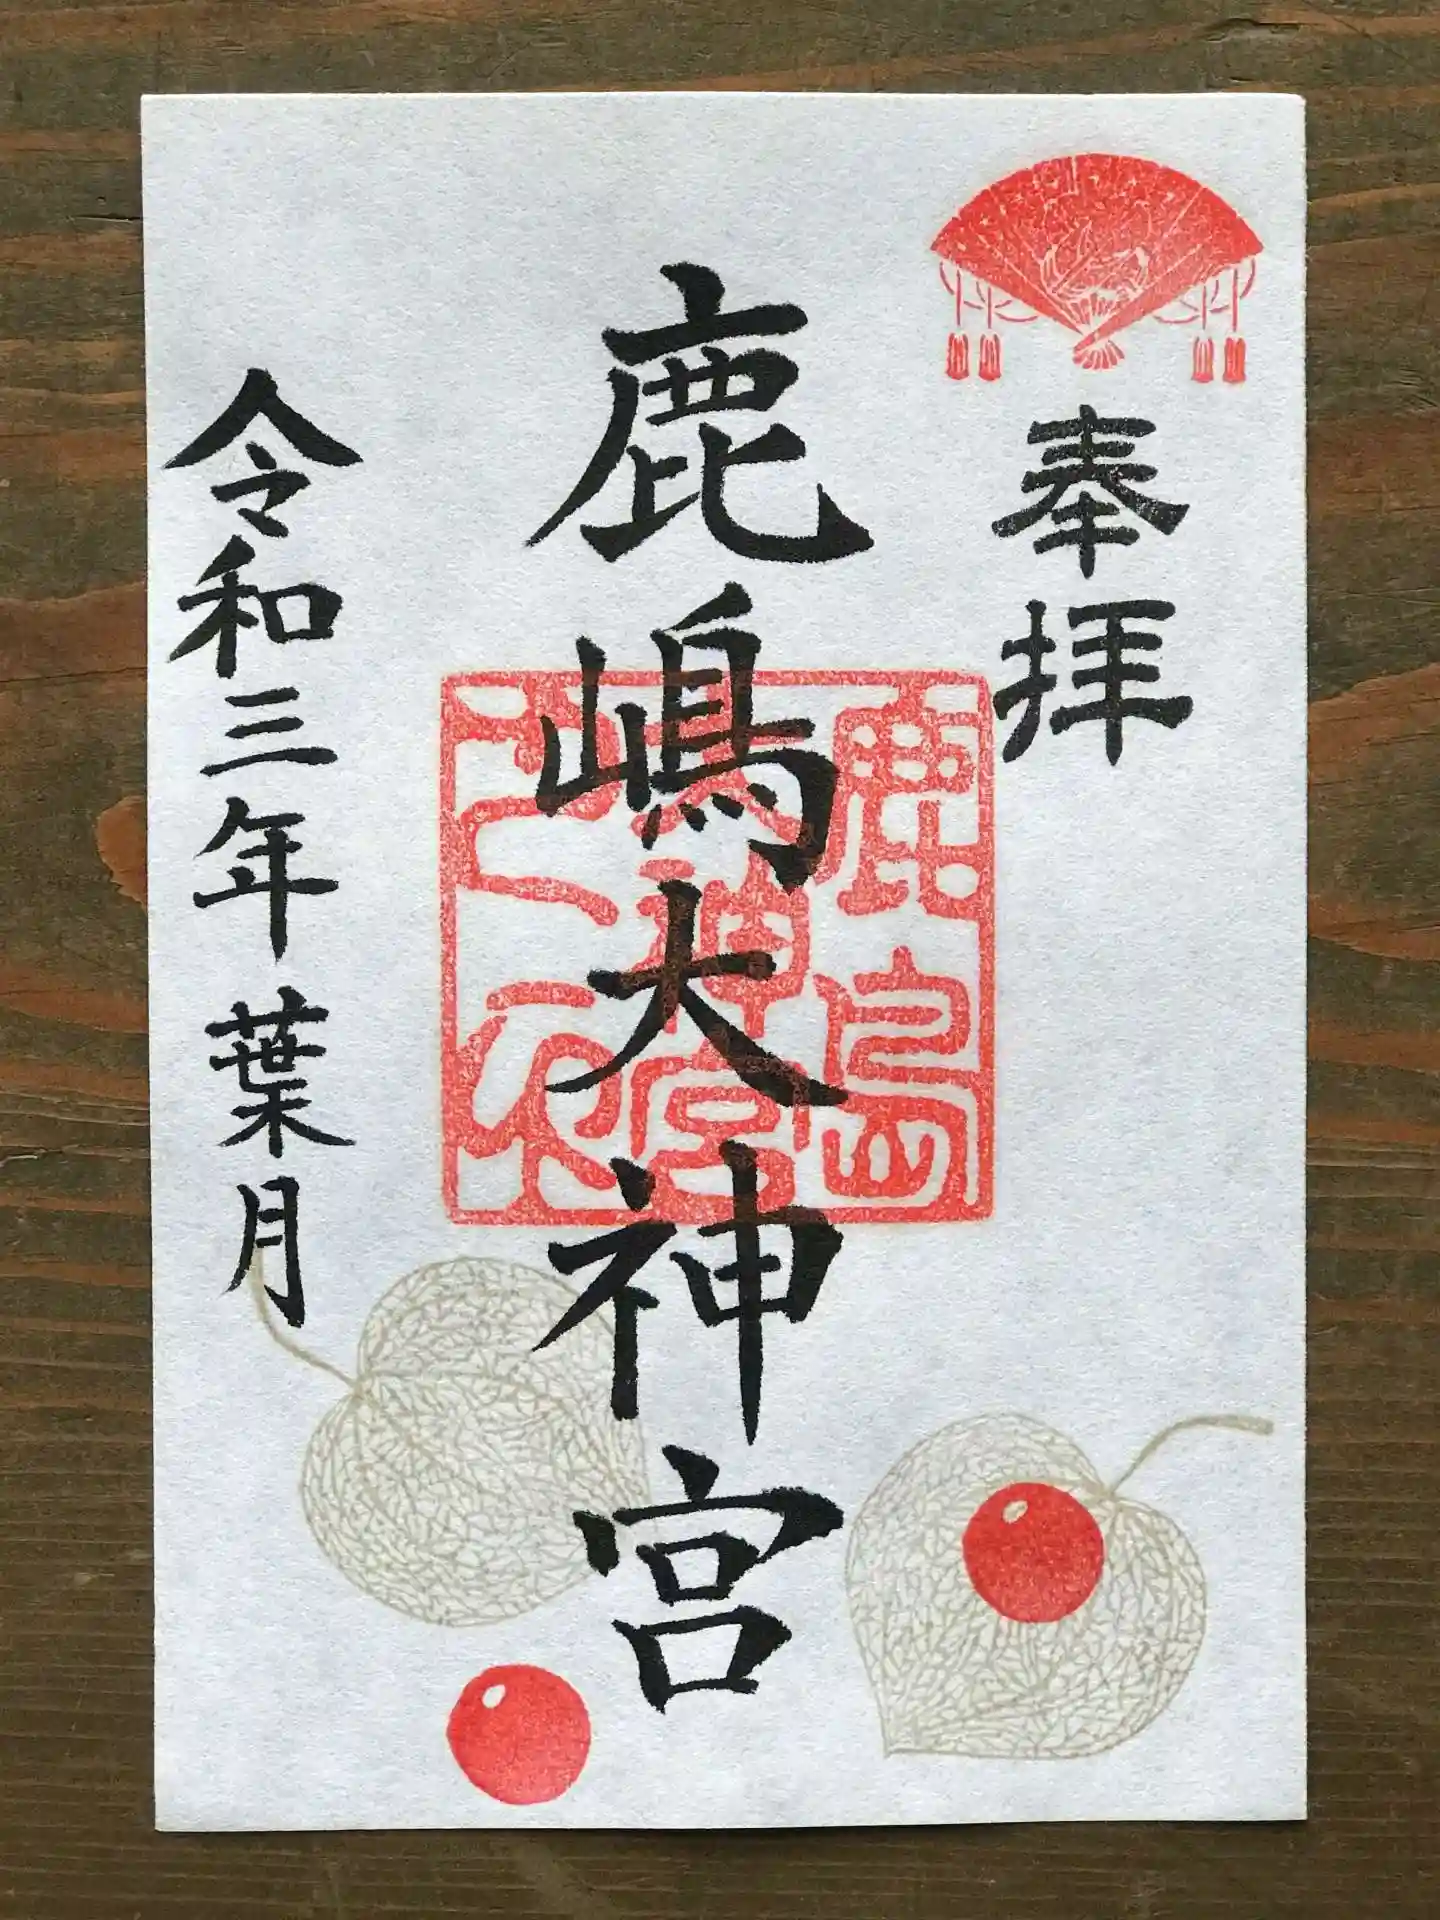 奉拝
鹿嶋大神宮
鹿嶋
大神宮
之印
令和三年葉月